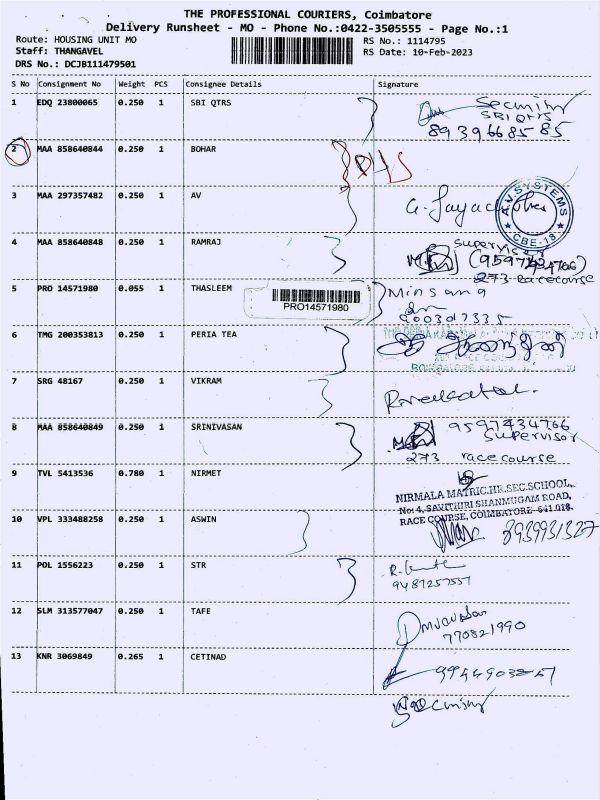 THE PROFESSIONAL COURIERS, Coimbatore
Delivery Runsheet - MO - Phone No.:0422-3505555 - Page No.:1
Route: HOUSING UNIT MO
Staff: THANGAVEL
DRS No.: DCJB111479501
RS No.: 1114795
RS Date: 10-Feb-2023
S No Consignment No Weight PCS Consignee Details Signature
1 EDQ 23800065 0.250 1 SBI QTRS Security
SBI QTRS
8939668585
2 MAA 858640844 0.250 1 BOHAR
3 MAA 297357482 0.250 1 AV
A.V. SYSTEMS
CBE-18
4 MAA 858640848 0.250 1 RAMRAJ Supervisor
273 racecourse
5 PRO 14571980 0.055 1 THASLEEM
PRO14571980
6 TMG 200353813 0.250 1 PERIA TEA
7 SRG 48167 0.250 1 VIKRAM
8 MAA 858640849 0.250 1 SRINIVASAN 9597434766
Supervisor
273 racecourse
9 TVL 5413536 0.780 1 NIRMET
NIRMALA MATRIC.HR.SEC.SCHOOL,
No: 4, SAVITHIRI SHANMUGAM ROAD,
RACE COURSE, COIMBATORE-641 018.
10 VPL 333488258 0.250 1 ASWIN 8939931327
11 POL 1556223 0.250 1 STR
9487257557
12 SLM 313577047 0.250 1 TAFE
770821990
13 KNR 3069849 0.265 1 CETINAD
Security